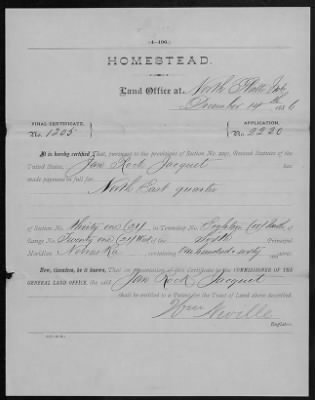 (4—196.)
HOMESTEAD.
Land Office at North Platte Neb
December 14th 1886
FINAL CERTIFICATE.
No. 1205
APPLICATION.
No. 2220
It is hereby certified That, pursuant to the provisions of Section No. 2291, General Statutes of the
United States, Jan Rock Jacquet has
made payment in full for
North East quarter
of Section No. Thirty one (31), in Township No. Eighteen (18) North, of
Range No. Twenty one (21) West of the Sixth Principal
Meridian Nebraska, containing One hundred & sixty acres.
Now, therefore, be it known, That on presentation of this Certificate to the COMMISSIONER OF THE
GENERAL LAND OFFICE, the said Jan Rock Jacquet
shall be entitled to a Patent for the Tract of Land above described.
Wm Neville
Register.